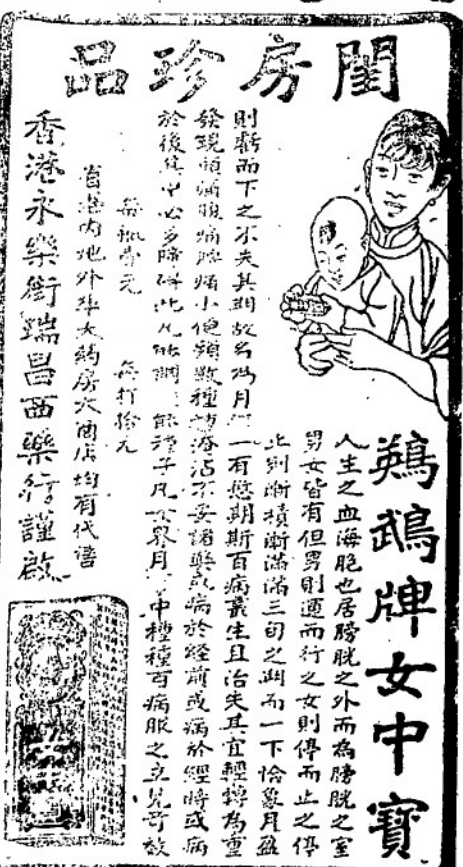 閨房珍品
鸚鵡牌女中寶
人生之血海胞也居膀胱之外而為膀胱之室
男女皆有但男則運而行之女則停而止之停
止則漸積漸滿滿三旬之期而一下恰象月盈
則虧而下之不失其期故名為月 一有愆期斯百病叢生且治失其宜輕轉為重
發現頭痛腹痛腰痛小便頻數種 淹沾不妥諸藥或病於經前或病於經時或病
於後其中必多障碍此 能調 能種子凡女界月 中種種百病服之立見奇效
每瓶壹元 每打拾元
省港內地外埠大葯房大酒店均有代售
香港永樂街瑞昌西藥行謹啟